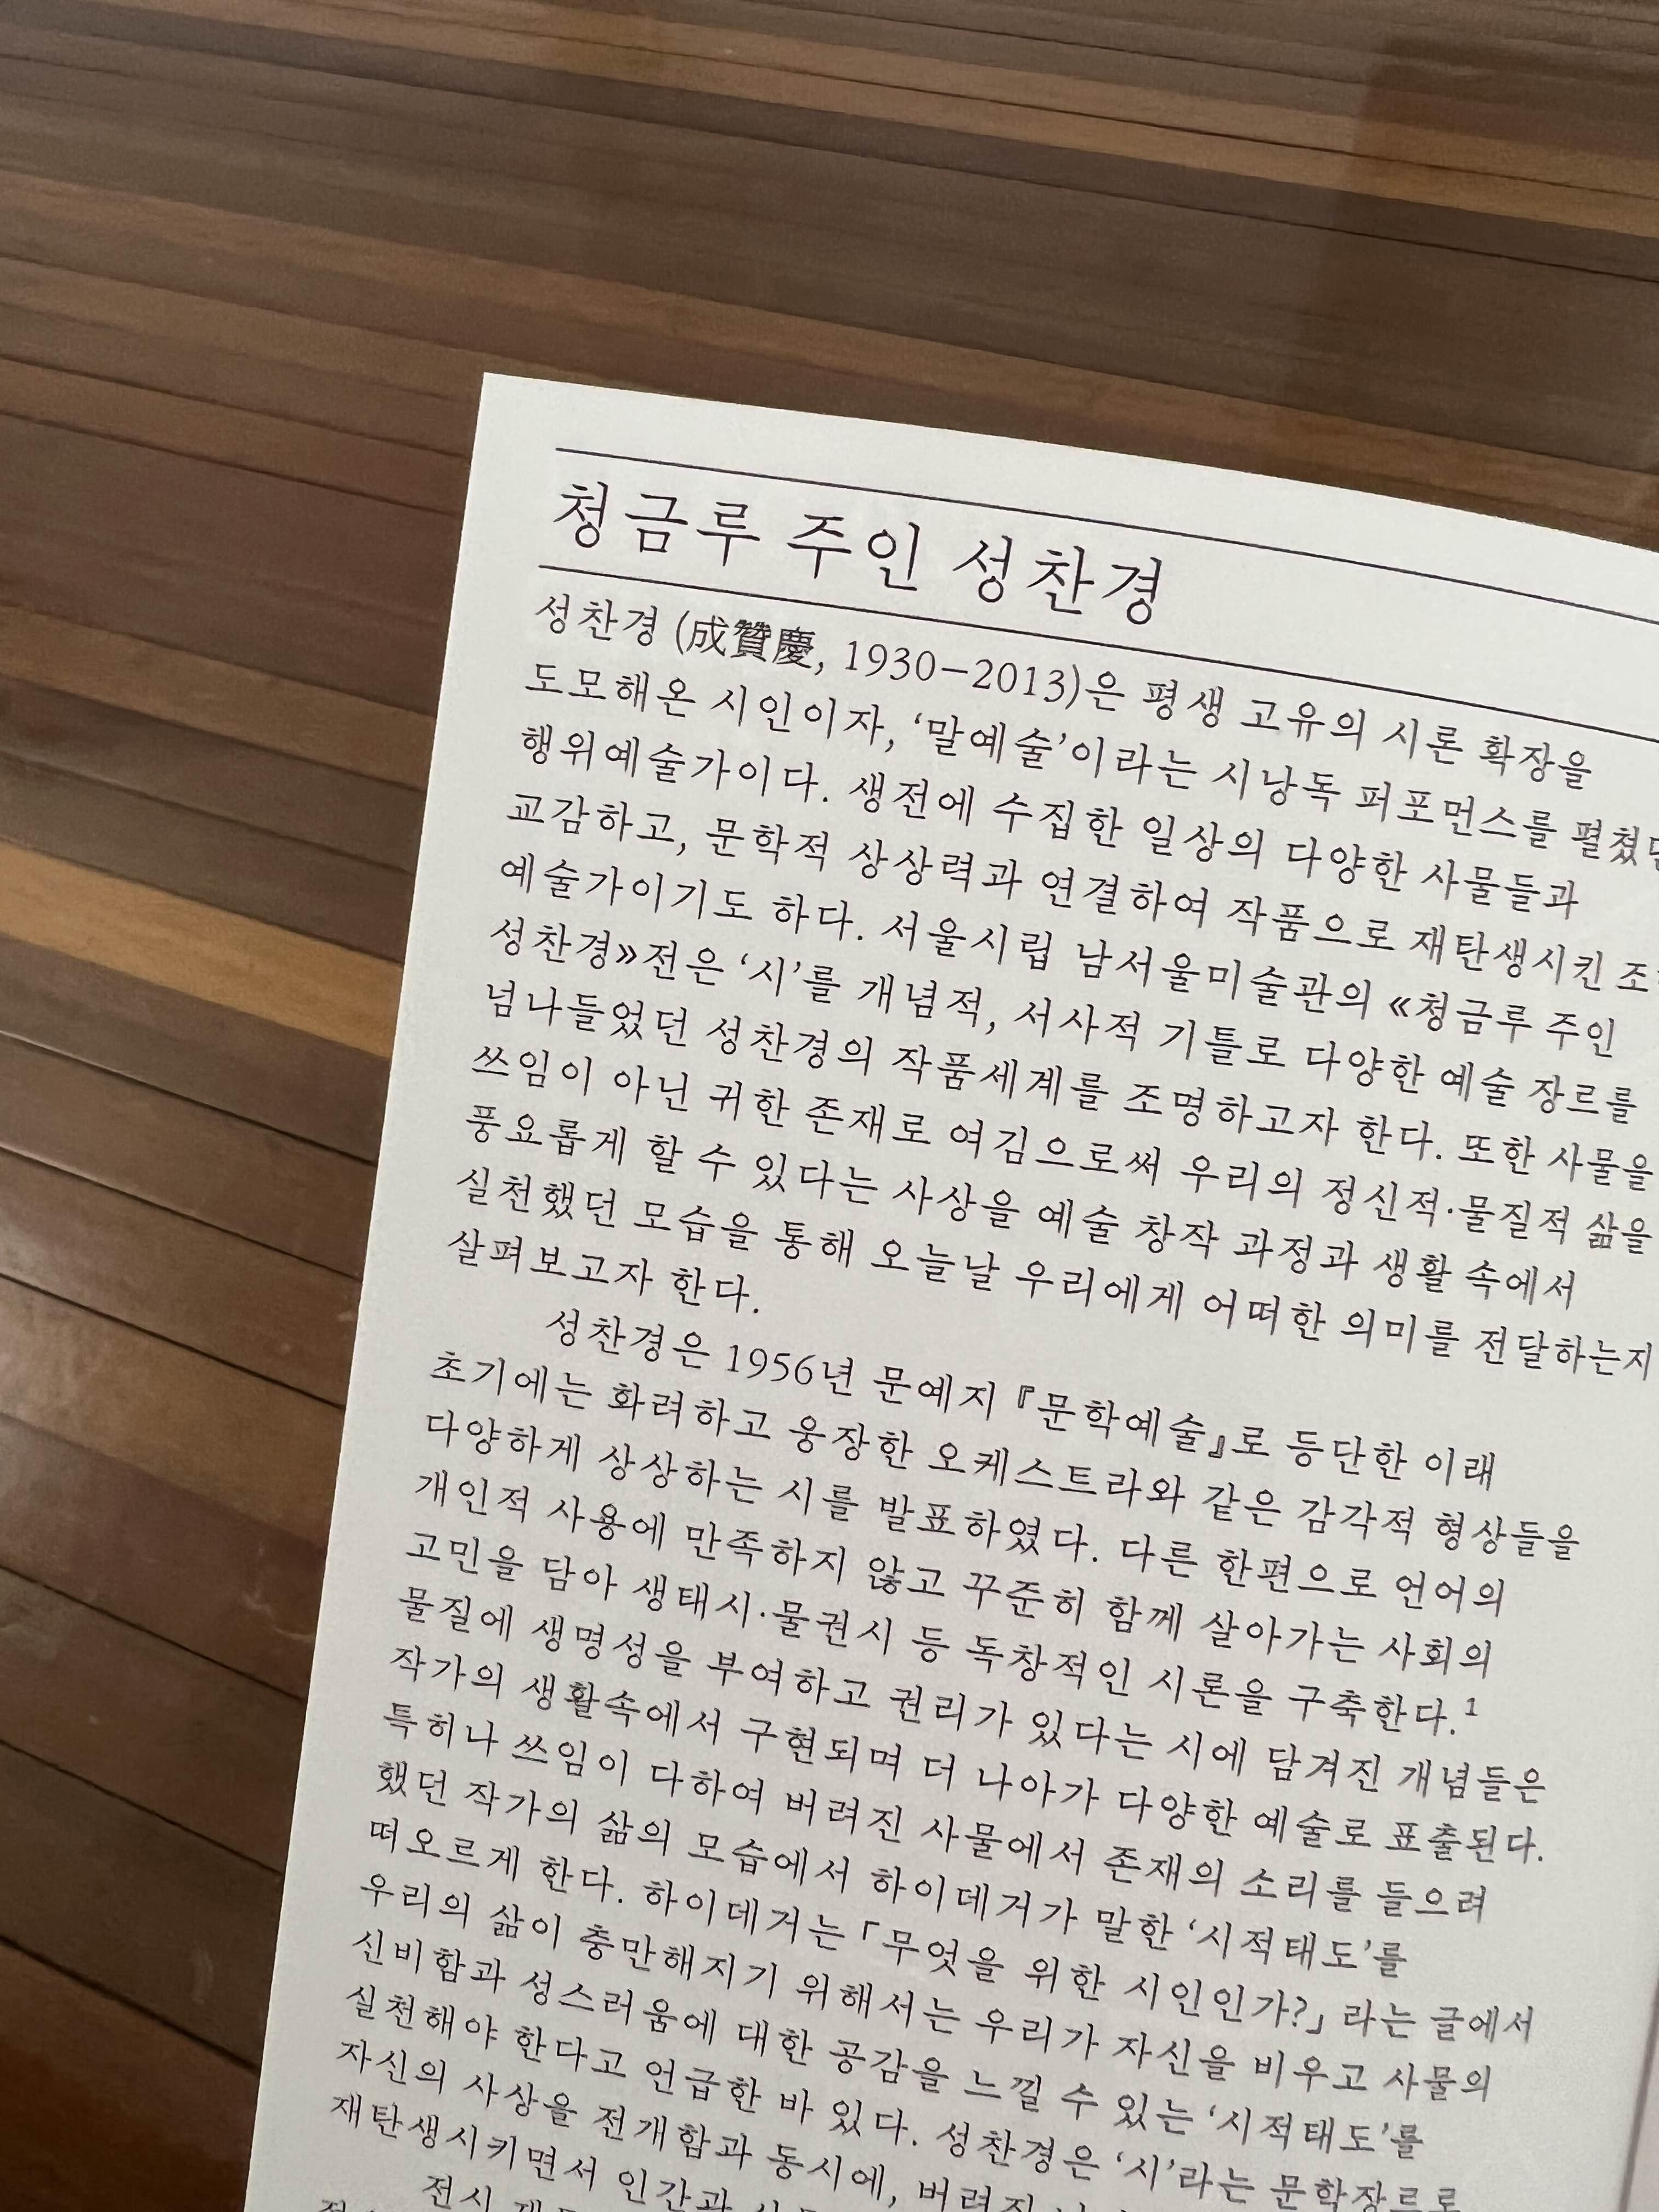 청금루 주인 성찬경
성찬경 (成賛慶, 1930–2013)은 평생 고유의 시론 확장을
도모해온 시인이자, ‘말예술’이라는 시낭독 퍼포먼스를 펼쳤던
행위예술가이다. 생전에 수집한 일상의 다양한 사물들과
교감하고, 문학적 상상력과 연결하여 작품으로 재탄생시킨
예술가이기도 하다. 서울시립 남서울미술관의 《청금루 주인
성찬경》전은 ‘시’를 개념적, 서사적 기틀로 다양한 예술 장르를
넘나들었던 성찬경의 작품세계를 조명하고자 한다. 또한 사물을
쓰임이 아닌 귀한 존재로 여김으로써 우리의 정신적·물질적 삶을
풍요롭게 할 수 있다는 사상을 예술 창작 과정과 생활 속에서
실천했던 모습을 통해 오늘날 우리에게 어떠한 의미를 전달하는지
살펴보고자 한다.
성찬경은 1956년 문예지 『문학예술』로 등단한 이래
초기에는 화려하고 웅장한 오케스트라와 같은 감각적 형상들을
다양하게 상상하는 시를 발표하였다. 다른 한편으로 언어의
개인적 사용에 만족하지 않고 꾸준히 함께 살아가는 사회의
고민을 담아 생태시·물권시 등 독창적인 시론을 구축한다.¹
물질에 생명성을 부여하고 권리가 있다는 시에 담겨진 개념들은
작가의 생활속에서 구현되며 더 나아가 다양한 예술로 표출된다.
특히나 쓰임이 다하여 버려진 사물에서 존재의 소리를 들으려
했던 작가의 삶의 모습에서 하이데거가 말한 ‘시적태도’를
떠오르게 한다. 하이데거는 「무엇을 위한 시인인가?」 라는 글에서
우리의 삶이 충만해지기 위해서는 우리가 자신을 비우고 사물의
신비함과 성스러움에 대한 공감을 느낄 수 있는 ‘시적태도’를
실천해야 한다고 언급한 바 있다. 성찬경은 ‘시’라는 문학장르로
자신의 사상을 전개함과 동시에, 버려진
재탄생시키면서 인간과
전시